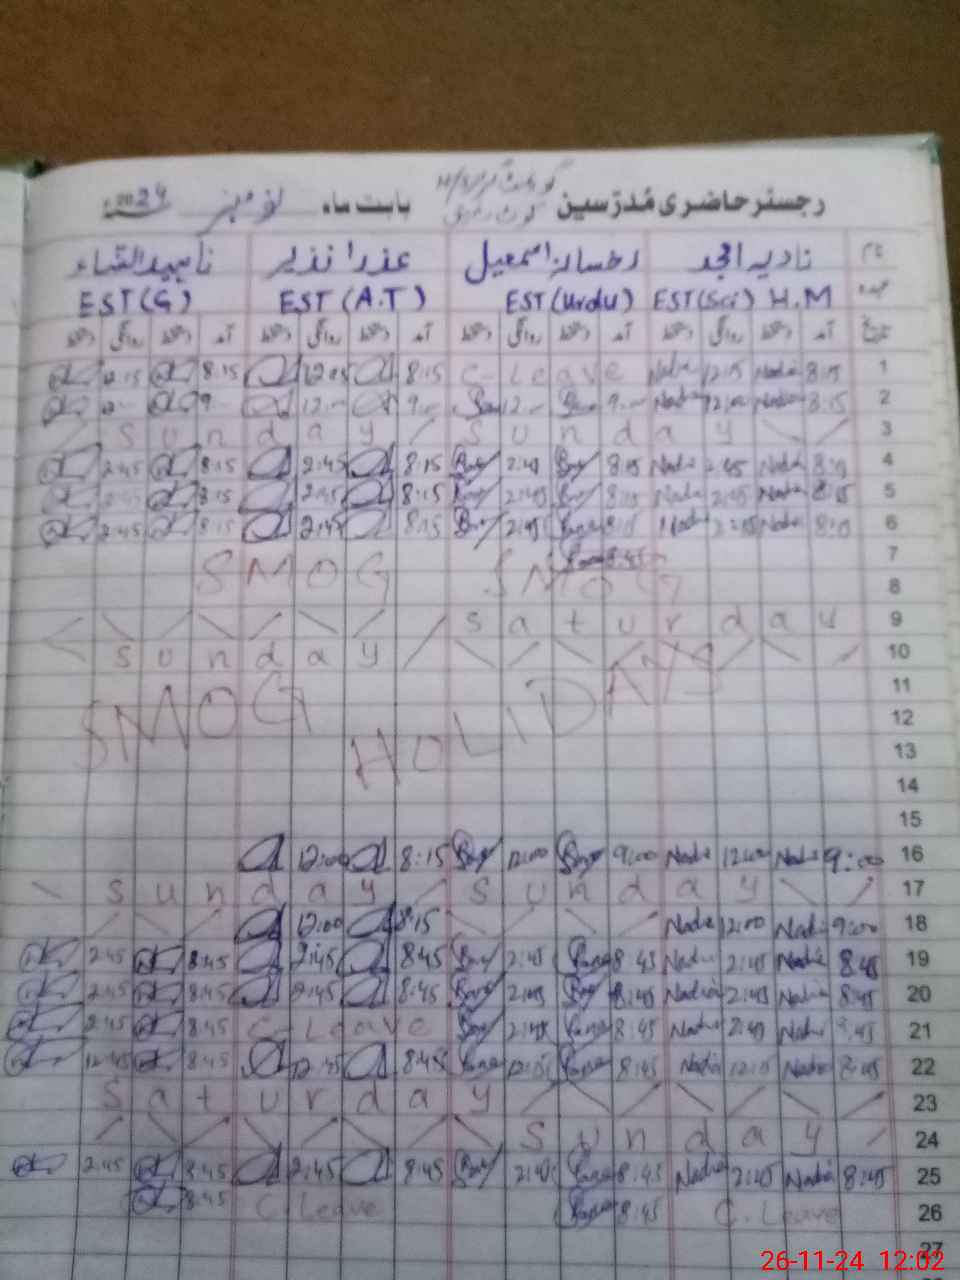 رجسٹر حاضری مُدرّسین بابت ماہ نومبر 2024
نام نادیہ امجد رخسانہ اسمعیل عذرا نذیر ناہید النساء
عہدہ EST(Sci) H.M EST(Urdu) EST(A.T) EST(G)
تاریخ آمد دستخط روانگی دستخط آمد دستخط روانگی دستخط آمد دستخط روانگی دستخط آمد دستخط روانگی دستخط
1 8:15 Nadia 12:15 Nadia C-Leave 8:15 12:05 8:15 12:15
2 8:15 Nadia 12:00 Nadia 9:00 12:00 9:00 12:00 9:00
3 Sunday Sunday
4 8:15 Nadia 2:45 Nadia 8:15 2:45 8:15 2:45 8:15 2:45
5 8:15 Nadia 2:45 Nadia 8:15 2:45 8:15 2:45 8:15 2:45
6 8:15 Nadia 2:45 Nadia 8:15 2:45 8:15 2:45 8:15 2:45
7 8:45
8 SMOG SMOG
9 Saturday
10 Sunday
11
12 SMOG HOLIDAYS
13
14
15
16 9:00 Nadia 12:00 Nadia 9:00 12:00 8:15 12:00
17 Sunday Sunday
18 9:00 Nadia 12:00 Nadia 8:15 12:00
19 8:45 Nadia 2:45 Nadia 8:45 2:45 8:45 2:45 8:45 2:45
20 8:45 Nadia 2:45 Nadia 8:45 2:45 8:45 2:45 8:45 2:45
21 8:45 Nadia 2:45 Nadia 8:45 2:45 C-Leave 8:45 2:45
22 8:45 Nadia 12:15 Nadia 8:45 12:15 8:45 12:45 8:45 12:45
23 Saturday
24 Sunday
25 8:45 Nadia 2:45 Nadia 8:45 2:45 8:45 2:45 8:45 2:45
26 C.Leave 8:45 C.Leave 8:45
27
26-11-24 12:02